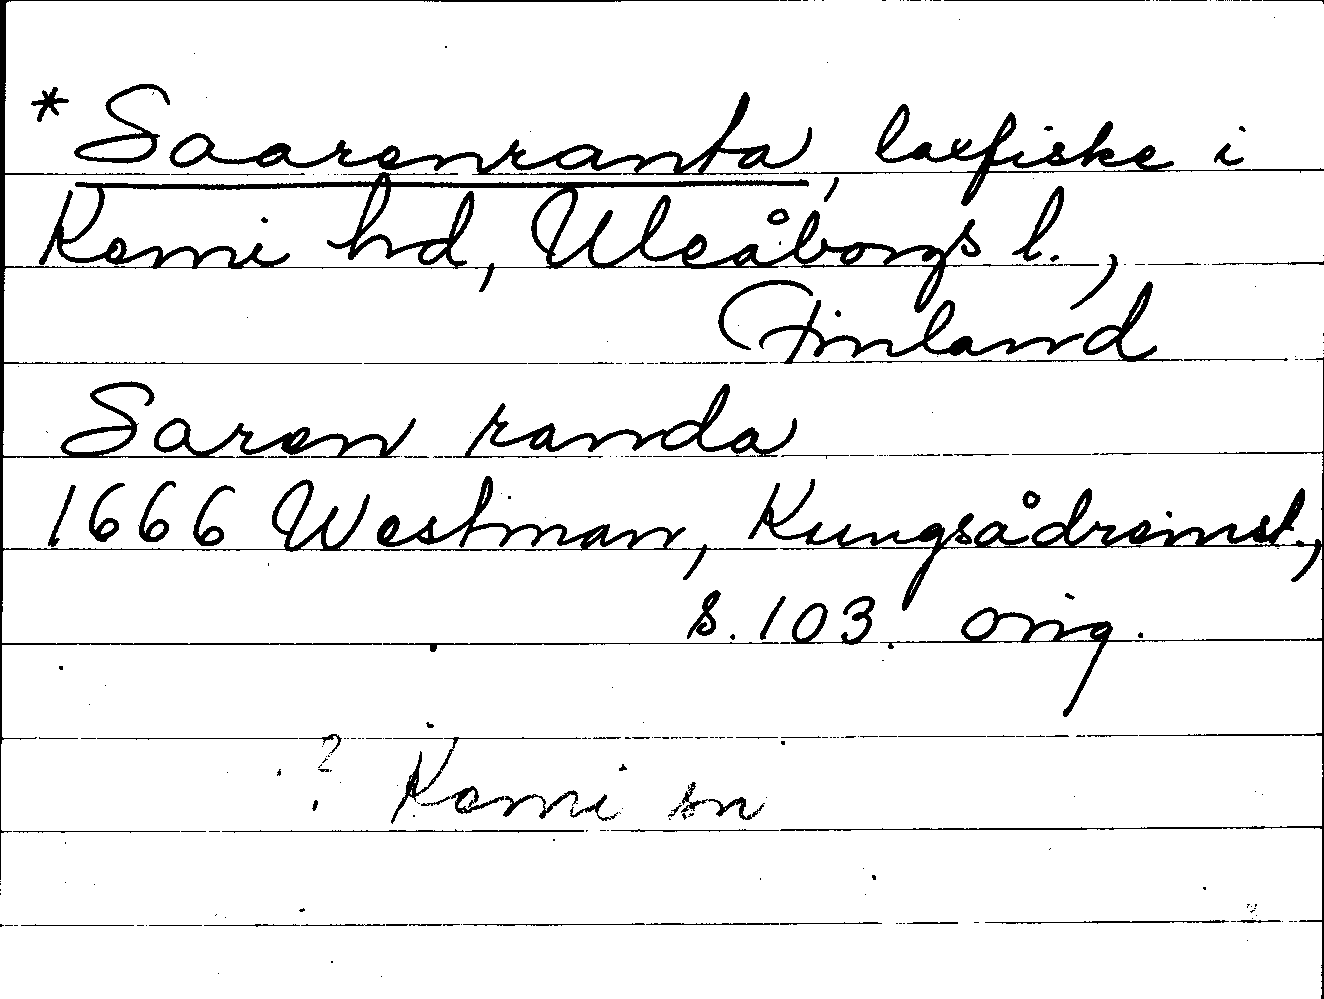 * Saarenranta, laxfiske i
Kemi hd, Uleåborgs l.,
Finland
Saren randa
1666 Westman, Kungsådreinst.,
s. 103. orig.
? Kemi sn